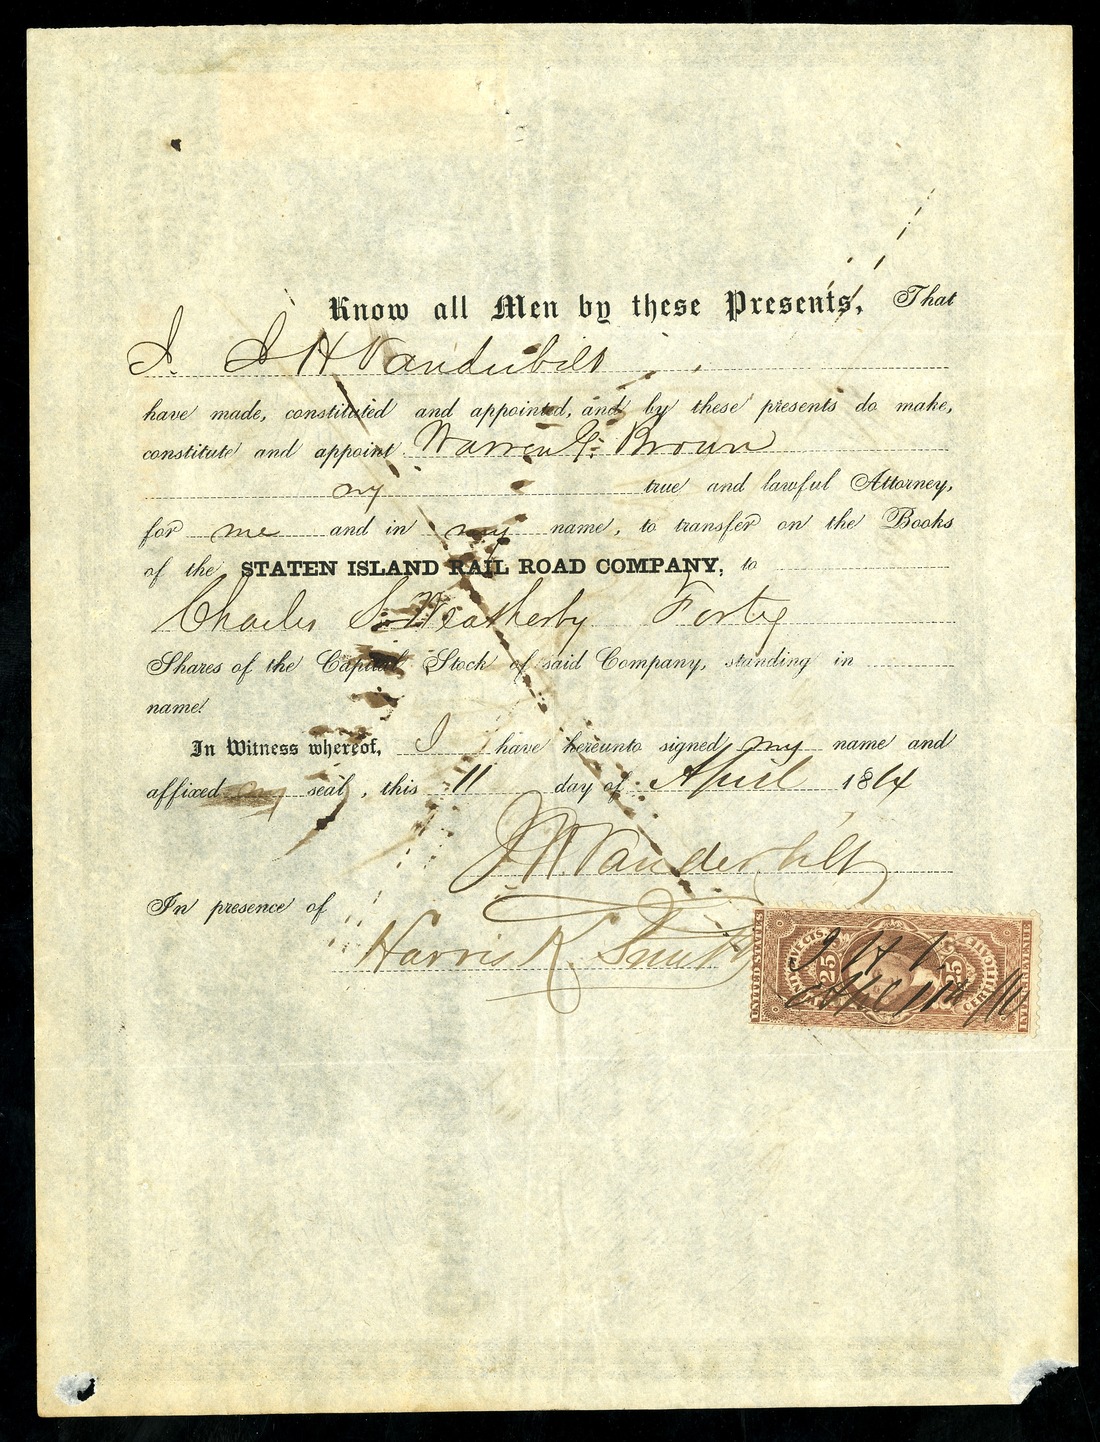 Know all Men by these Presents, That
I. J H Vanderbilt
have made, constituted and appointed, and by these presents do make,
constitute and appoint Warren G. Brown
my true and lawful Attorney,
for me and in my name, to transfer on the Books
of the STATEN ISLAND RAIL ROAD COMPANY, to
Charles S. Weatherby Forty
Shares of the Capital Stock of said Company, standing in
name.
In Witness whereof, I have hereunto signed my name and
affixed my seal, this 11 day of April 1864
J H Vanderbilt
In presence of
Harris K. Smith
UNITED STATES
25
25
CERTIFICATE
INTER. REVENUE